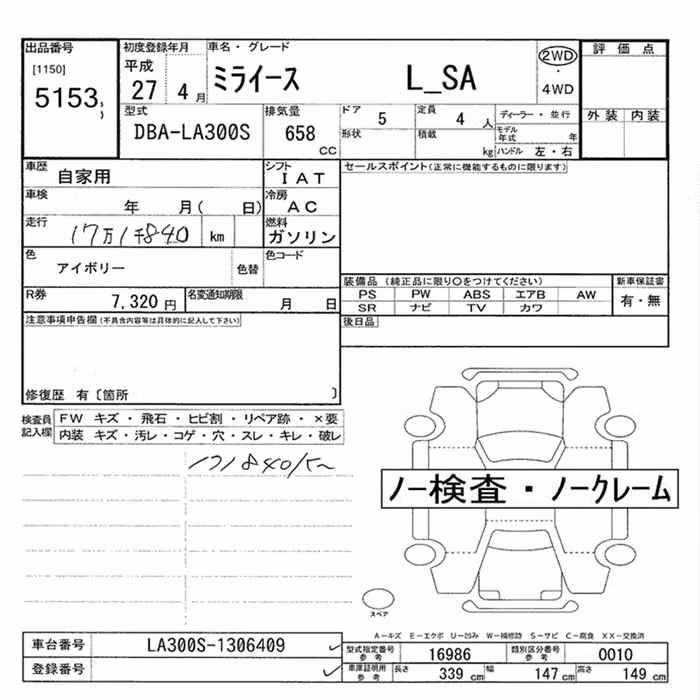 出品番号
[1150]
5153
初度登録年月
平成
27 4月
車名・グレード
ミライース L_SA
2WD
・
4WD
評価点
外装 内装
型式
DBA-LA300S
排気量
658
CC
ドア
5
定員
4人
ディーラー・並行
形状
積載
kg
モデル年式 年
ハンドル 左・右
車歴
自家用
シフト
IAT
セールスポイント(正常に機能するものに限ります)
車検
年 月( 日)
冷房
AC
走行
17万1千840 km
燃料
ガソリン
色
アイボリー
色替
色コード
R券
7,320円
名変通知期限
月 日
装備品(純正品に限り○をつけてください)
PS PW ABS エアB AW
SR ナビ TV カワ
新車保証書
有・無
後日品
注意事項申告欄(不具合内容等は具体的に記入して下さい)
修復歴 有〔箇所 〕
検査員記入欄
FW キズ・飛石・ヒビ割・リペア跡・×要
内装 キズ・汚レ・コゲ・穴・スレ・キレ・破レ
171840km
ノー検査・ノークレーム
スペア
A-キズ E-エクボ U-凹み W-補修跡 S-サビ C-腐食 XX-交換済
車台番号
LA300S-1306409
登録番号
型式指定番号参考
16986
類別区分番号参考
0010
車庫証明用参考
長さ 339cm 幅 147cm 高さ 149cm